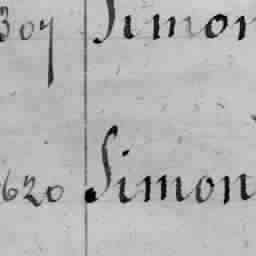 307 Simon
620 Simon